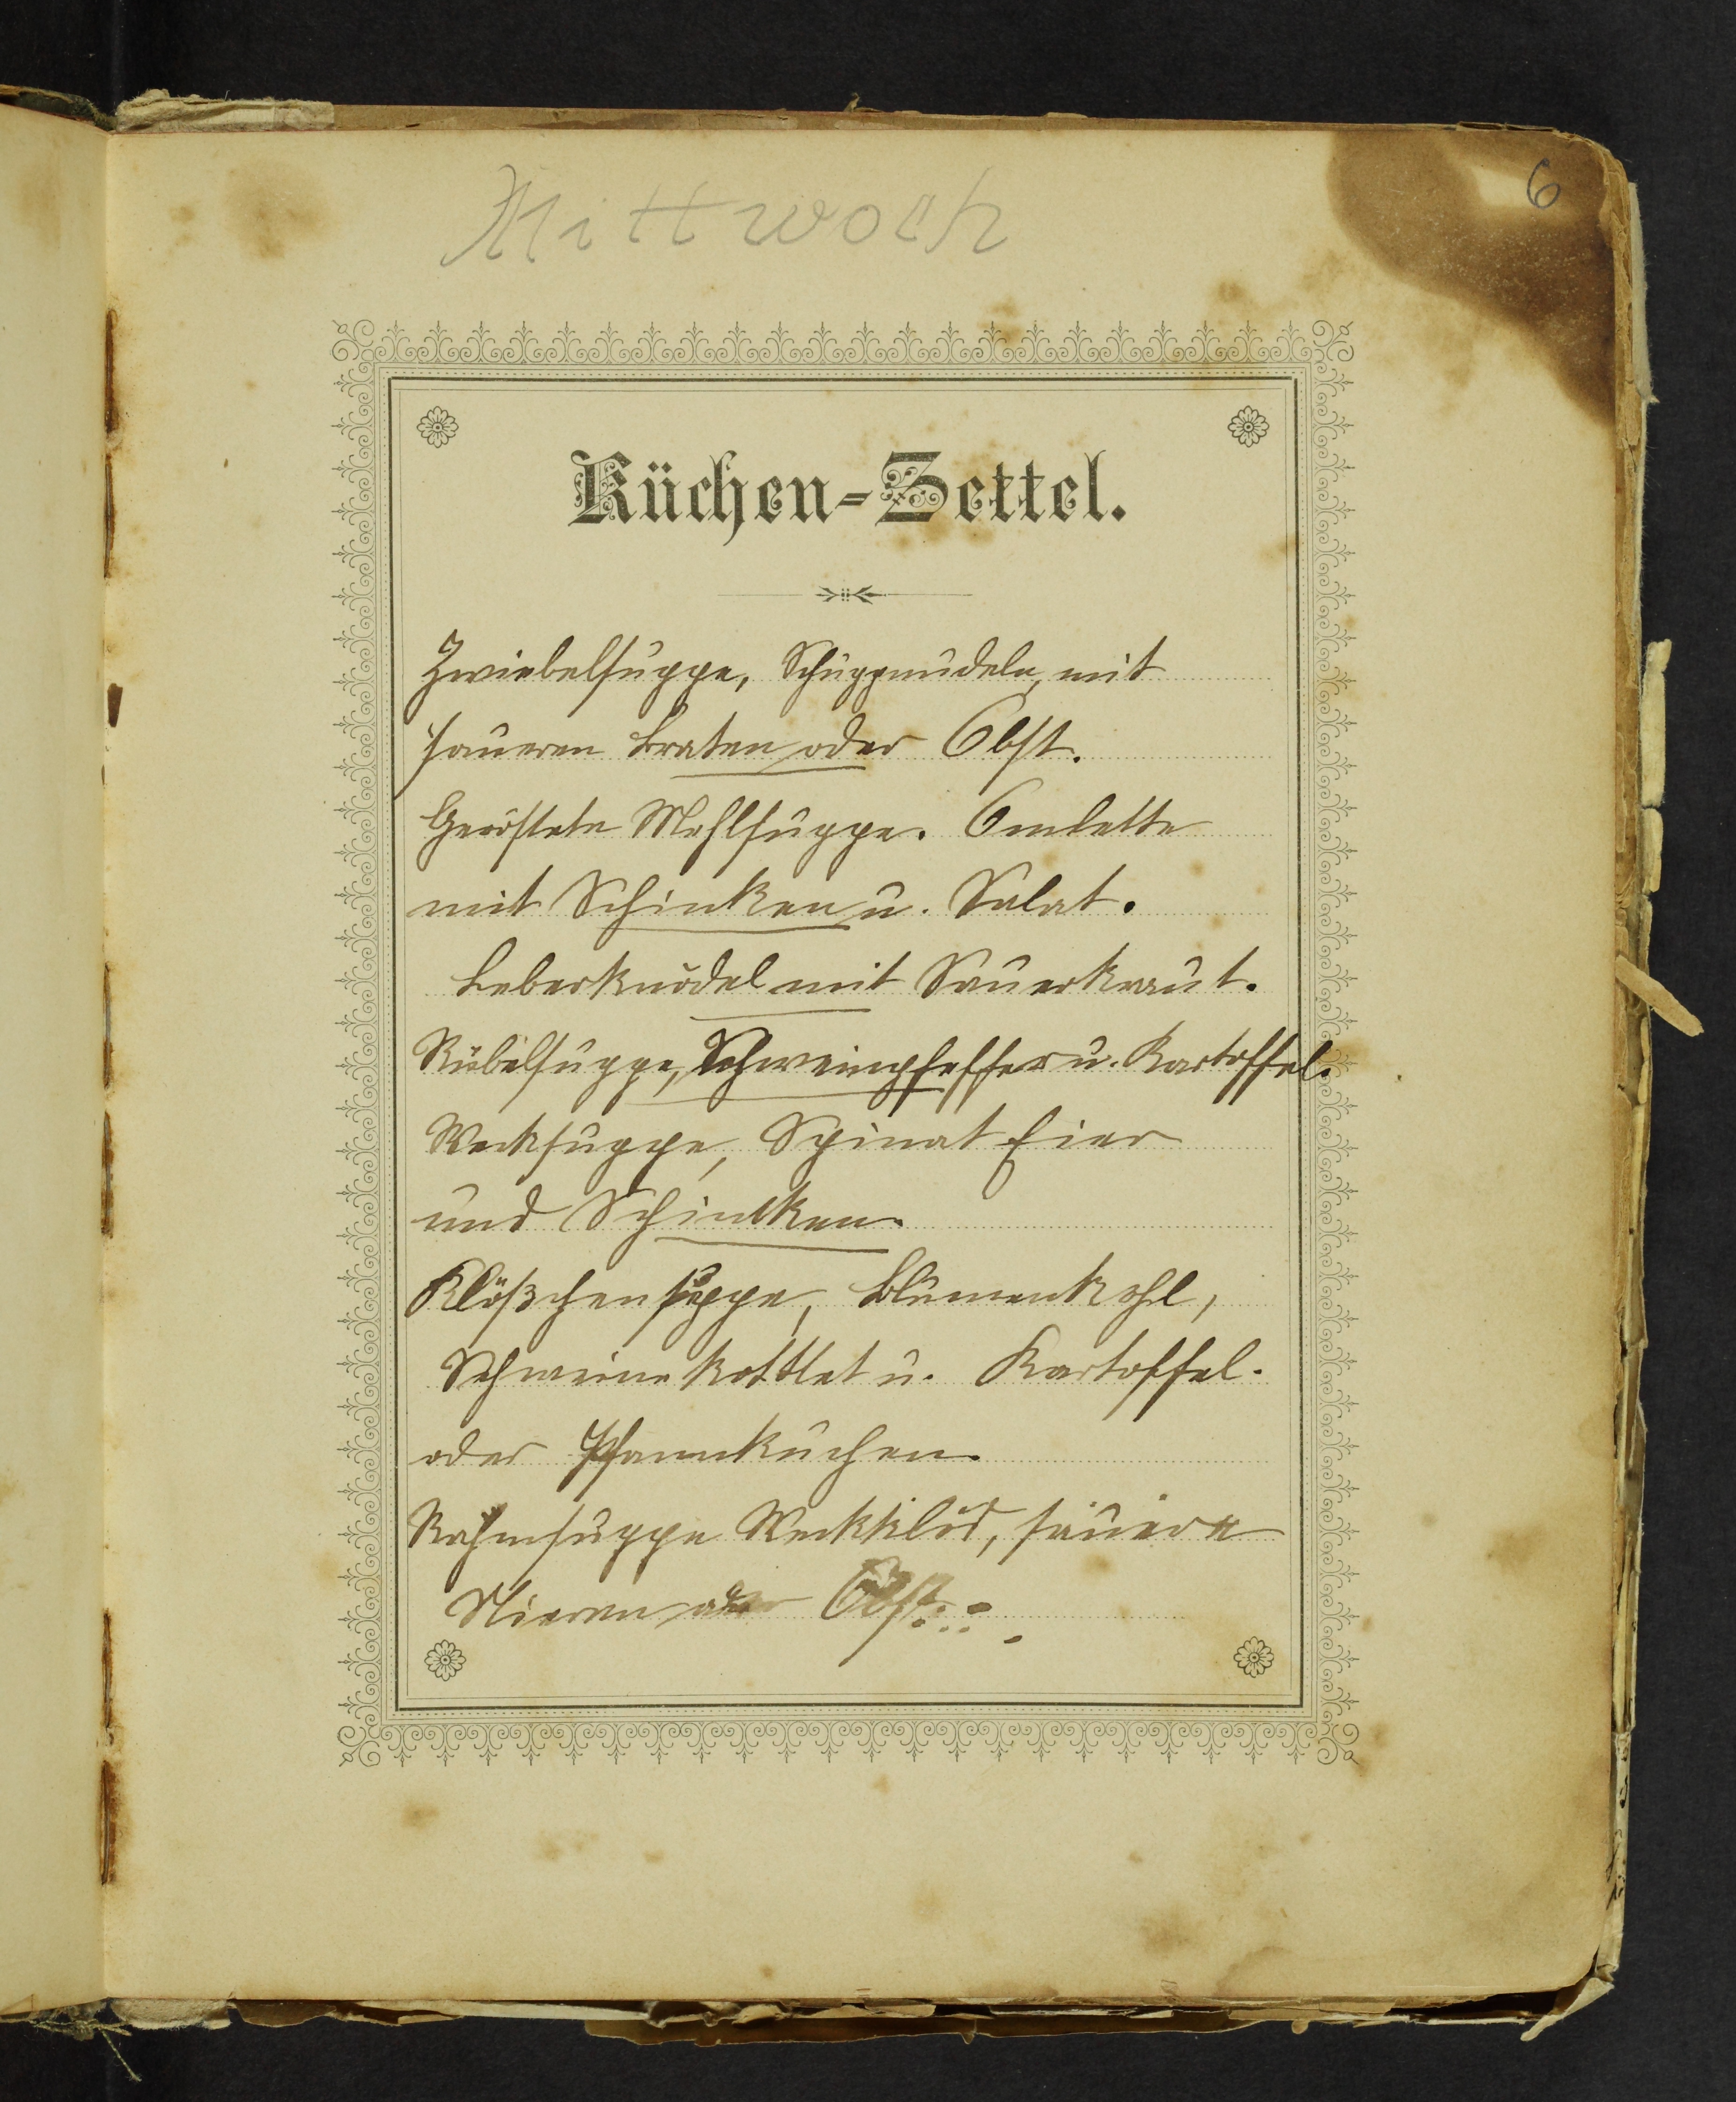 6
Mittwoch
Küchen-Zettel.
Zwiebelsuppe, Schuppnudeln, mit
saueren Braten oder Obst.
Geröstete Mehlsuppe. Omlette
mit Schinken u. Salat.
Leberknödel mit Sauerkraut.
Rübelsuppe, Schweinpfeffer u. Kartoffel.
Wecksuppe, Spinat Eier
und Schinken.
Klößchensuppe, Blumenkohl,
Schweinekottlet u. Kartoffel.
oder Pfannkuchen.
Rahmsuppe Weckklös, sauere
Nieren oder Obst.